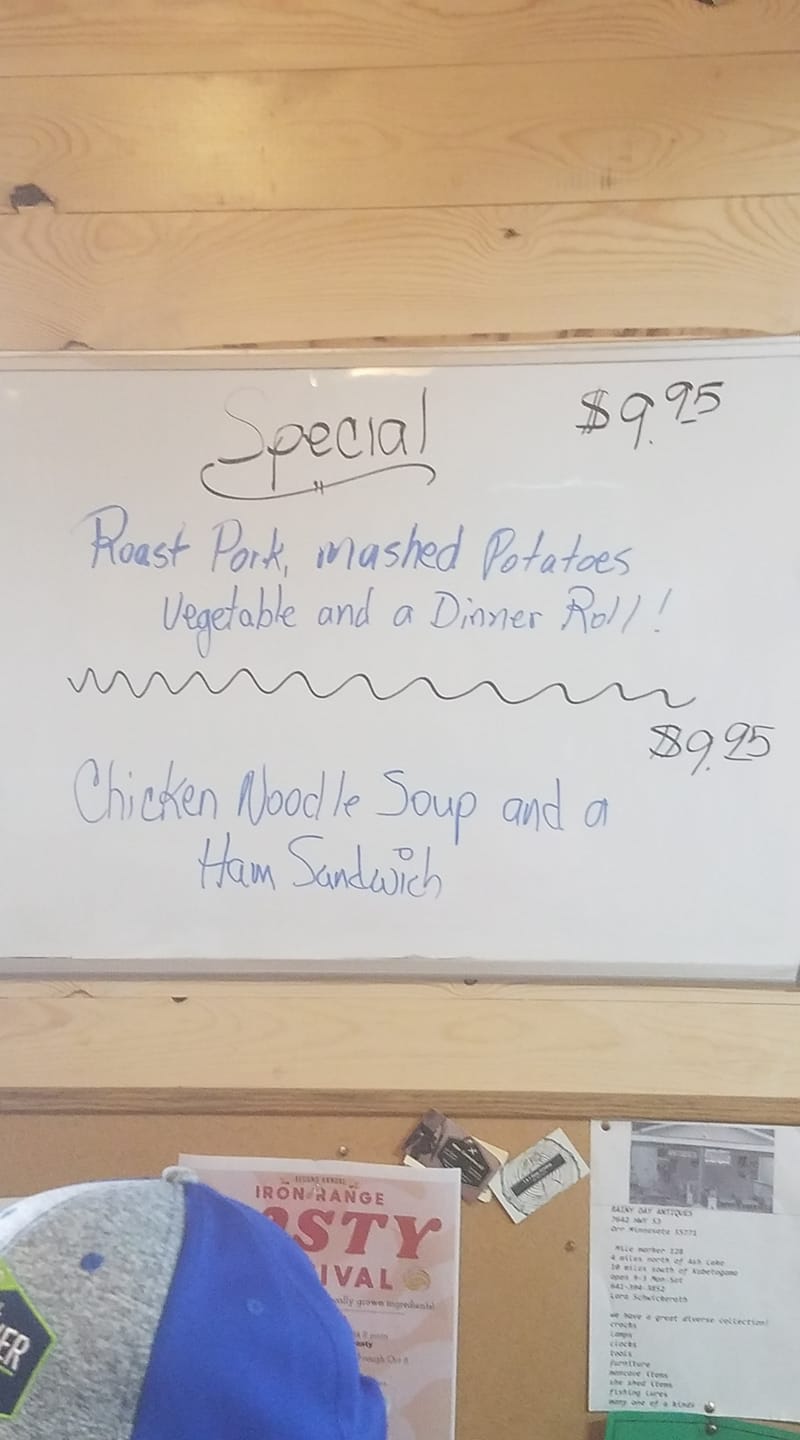 Special
$9.95
Roast Pork, mashed Potatoes
Vegetable and a Dinner Roll!
$9.95
Chicken Noodle Soup and a
Ham Sandwich
SECOND ANNUAL
IRON RANGE
STY
IVAL
ally grown ingredients!
RAINY DAY ANTIQUES
7642 HWY 53
Orr Minnesota 55771
Mile marker 128
4 miles north of Ash Lake
10 miles south of Kabetogama
open 9-5 Mon-Sat
Lara Schwickerath
we have a great diverse collection!
crocks
lamps
clocks
tools
furniture
mancave items
she shed items
fishing lures
many one of a kinds
ER